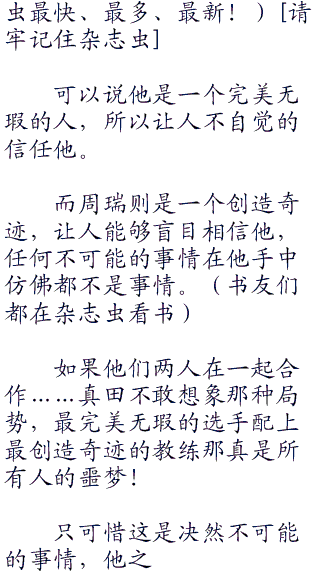 虫最快、最多、最新！）[请
牢记住杂志虫]
可以说他是一个完美无
瑕的人，所以让人不自觉的
信任他。
而周瑞则是一个创造奇
迹，让人能够盲目相信他，
任何不可能的事情在他手中
仿佛都不是事情。（书友们
都在杂志虫看书）
如果他们两人在一起合
作……真田不敢想象那种局
势，最完美无瑕的选手配上
最创造奇迹的教练那真是所
有人的噩梦！
只可惜这是决然不可能
的事情，他之